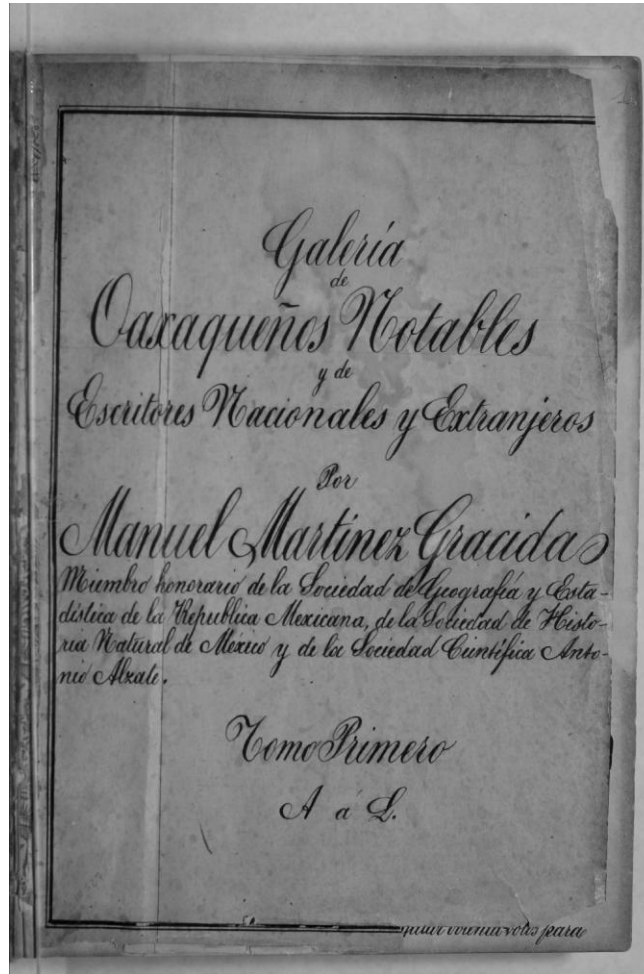 Galería
de
Oaxaqueños Notables
y de
Escritores Nacionales y Extranjeros
Por
Manuel Martínez Gracida
Miembro honorario de la Sociedad de Geografía y Esta-
dística de la Republica Mexicana, de la Sociedad de Histo-
ria Natural de México y de la Sociedad Científica Anto-
nio Alzate.
Tomo Primero
A á L.
votos para